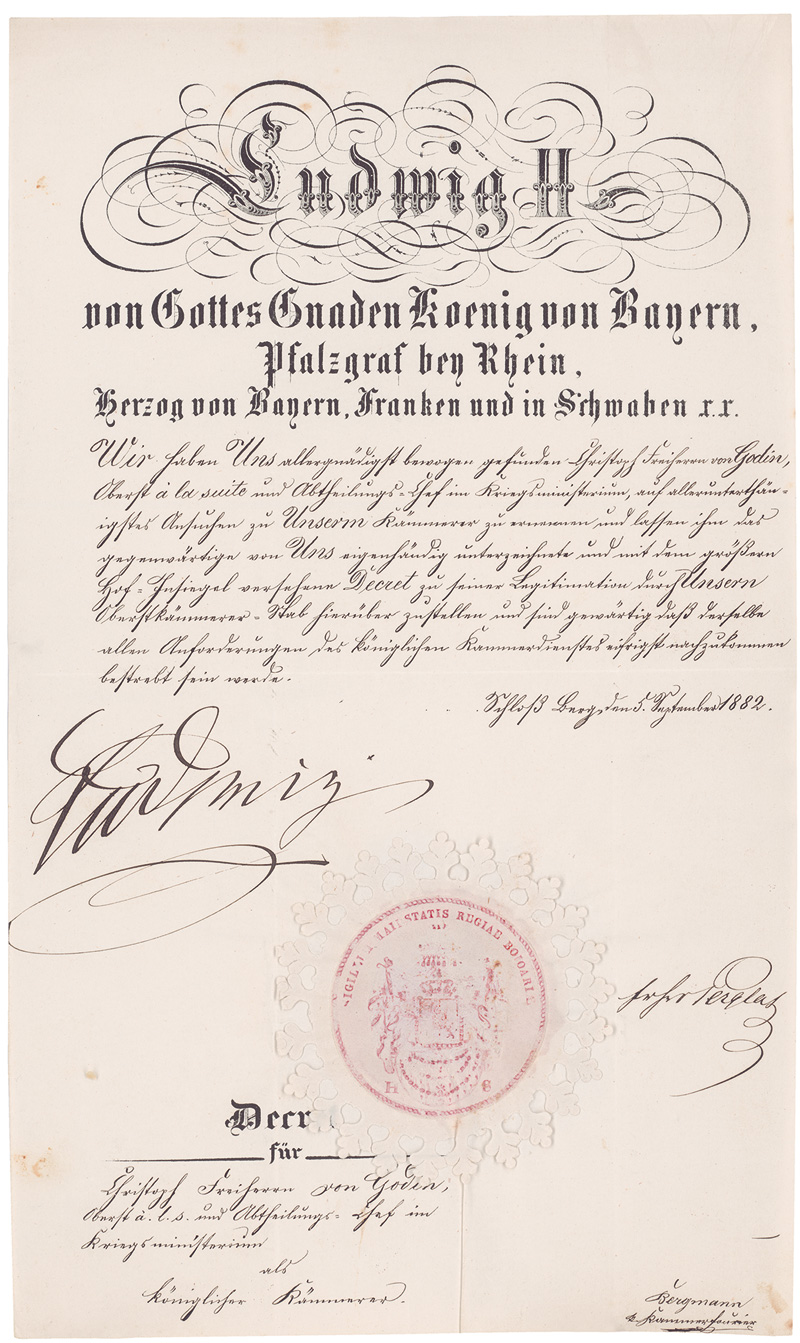 Ludwig II
von Gottes Gnaden Koenig von Bayern,
Pfalzgraf bey Rhein,
Herzog von Bayern, Franken und in Schwaben x.x.
Wir haben Uns allergnädigst bewogen gefunden Christoph Freiherrn von Godin,
Oberst à la suite und Abtheilungs-Chef im Kriegsministerium, auf allerunterthän-
igstes Ansuchen zu Unserm Kämmerer zu ernennen und lassen ihm das
gegenwärtige von Uns eigenhändig unterzeichnete und mit dem größern
Hof-Insiegel versehene Decret zu seiner Legitimation durch Unsern
Oberstkämmerer-Stab hierüber zustellen und sind gewärtig daß derselbe
allen Anforderungen des königlichen Kammerdienstes eifrigst nachzukommen
bestrebt sein werde.
Schloß Berg, den 5. September 1882.
Ludwig
MAIESTATIS REGIAE BOIOARI
H S
Frhr Perglas
Decr
für
Christoph Freiherrn von Godin,
Oberst à. l. s. und Abtheilungs-Chef im
Kriegsministerium
als
königlicher Kämmerer.
Bergmann
k. Kammerfourier